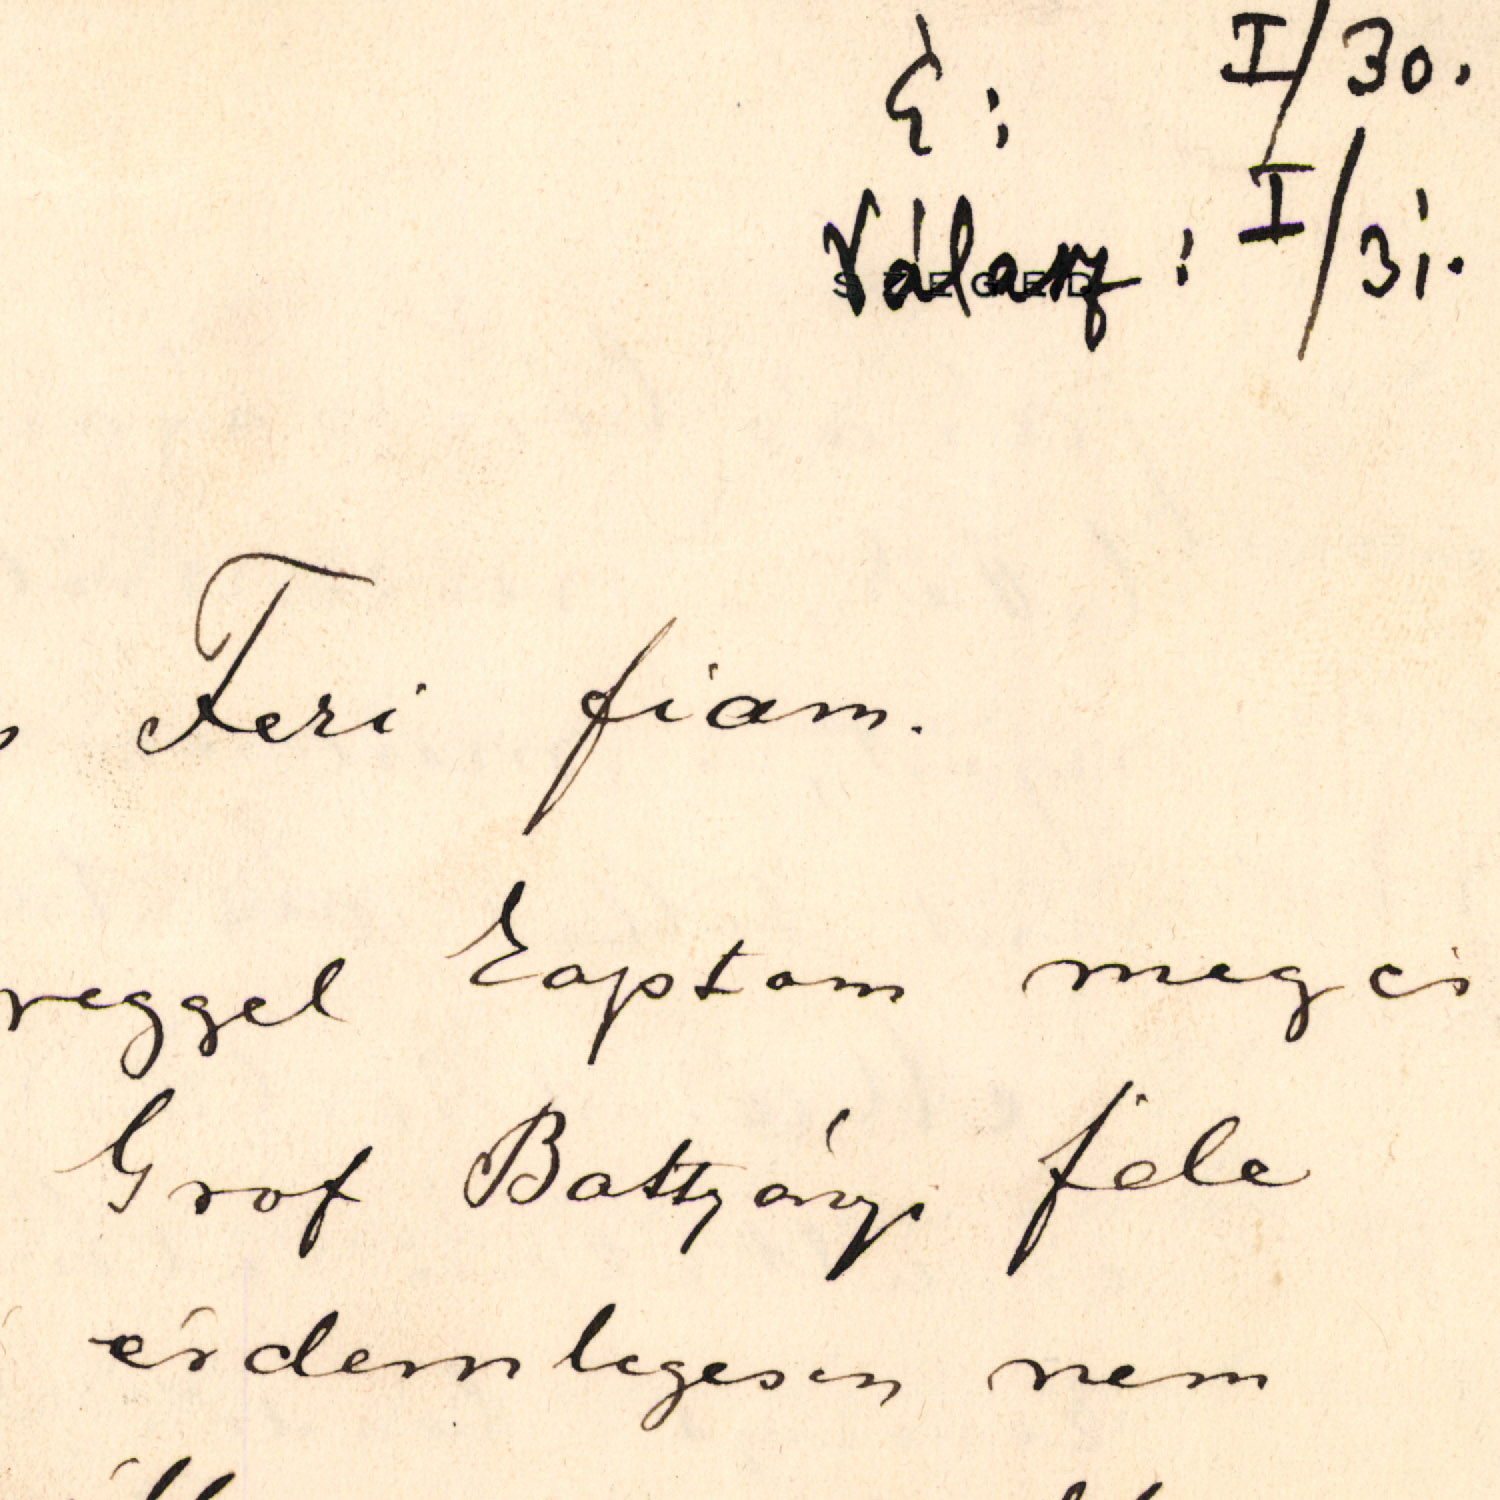 É: I/30.
Válasz: I/31.
SZEGED
Feri fiam.
reggel kaptam meg és
Grof Battyányi féle
érdemlegesen nem